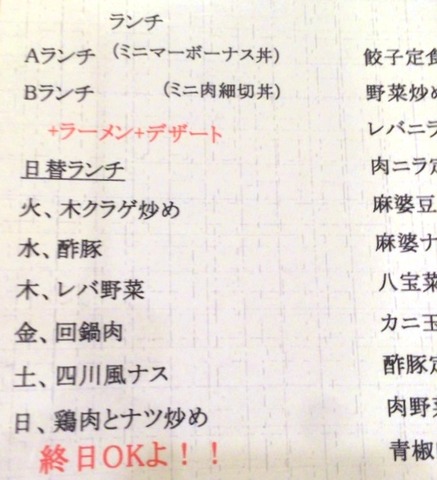 ランチ
Aランチ (ミニマーボーナス丼)
Bランチ (ミニ肉細切丼)
+ラーメン+デザート
日替ランチ
火、木クラゲ炒め
水、酢豚
木、レバ野菜
金、回鍋肉
土、四川風ナス
日、鶏肉とナツ炒め
終日OKよ！！
餃子定食
野菜炒め
レバニラ
肉ニラ定
麻婆豆
麻婆ナ
八宝菜
カニ玉
酢豚定
肉野菜
青椒